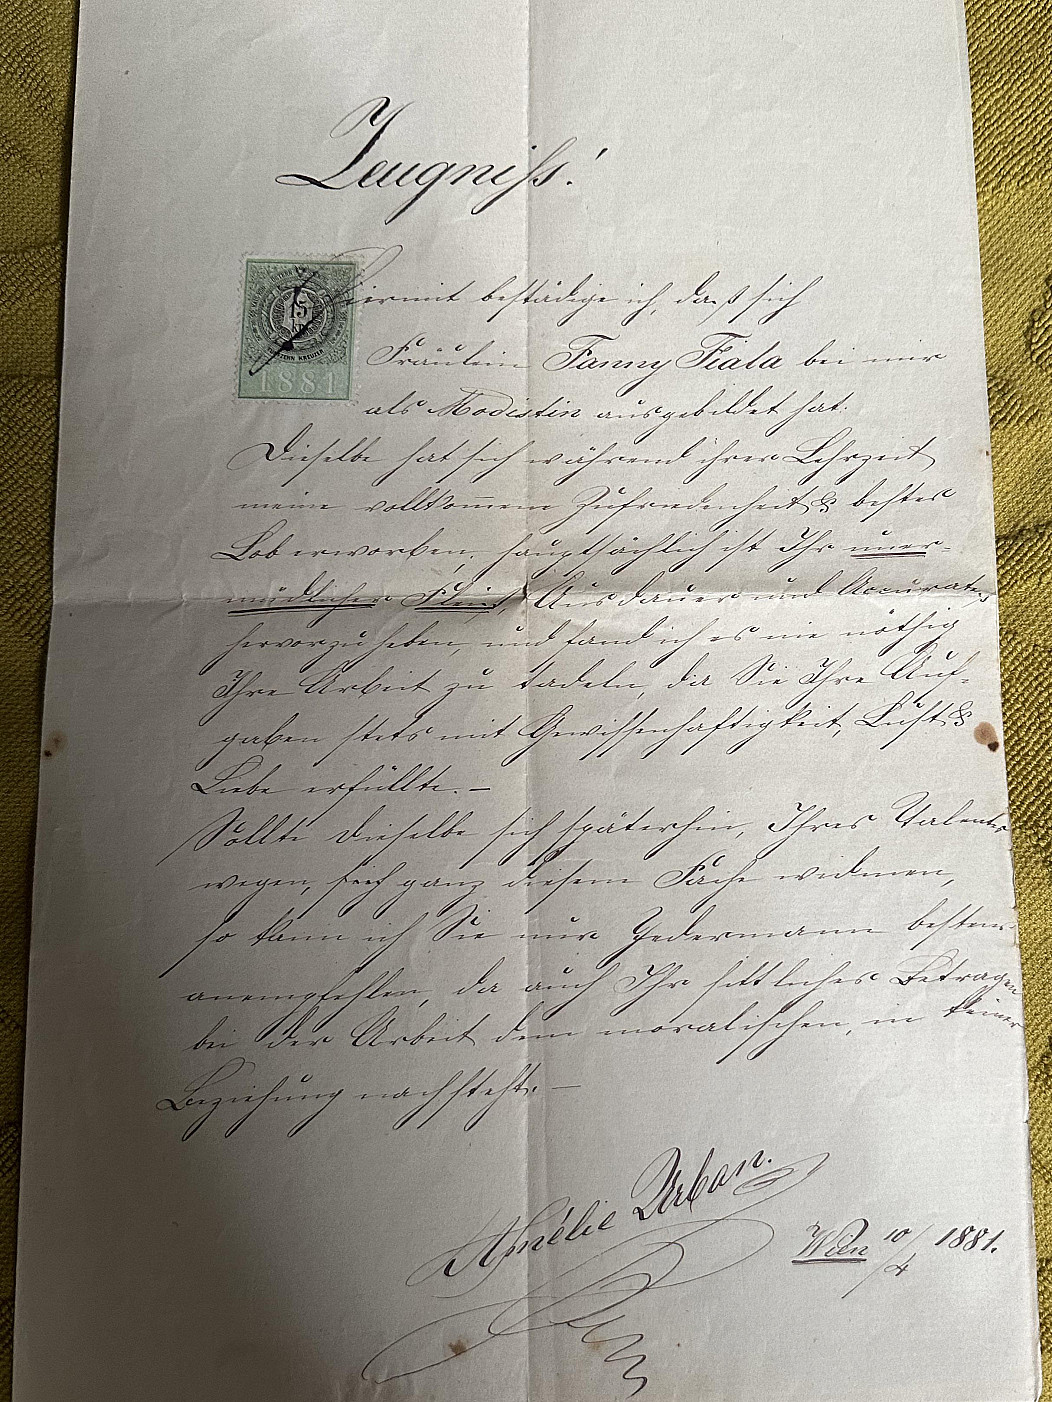 Zeugniss!
Hiermit bestädige ich, daß sich
15
KR
ZEHN KREUZER
1881
Fräulein Fanny Fiala bei mir
als Modistin ausgebildet hat.
Dieselbe hat sich während ihrer Lehrzeit
meine vollkom̅ene Zufriedenheit & bestes
Lob erworben, hauptsächlich ist Ihr uner-
müdlicher Fleiß, Ausdauer und Accuratess
hervorzuheben, und fand ich es nie nöthig
Ihre Arbeit zu tadeln, da Sie Ihre Auf-
gaben stets mit Gewissenhaftigkeit, Lust &
Liebe erfüllte. –
Sollte dieselbe sich späterhin, Ihres Talentes
wegen, sich ganz diesem Fache widmen,
so kann ich Sie nur Jedermann bestens
anempfehlen, da auch Ihr sittliches Betragen
bei der Arbeit dem moralischen, in keiner
Beziehung nachsteht. –
Amélie Urban.
Wien 10/4 1881.